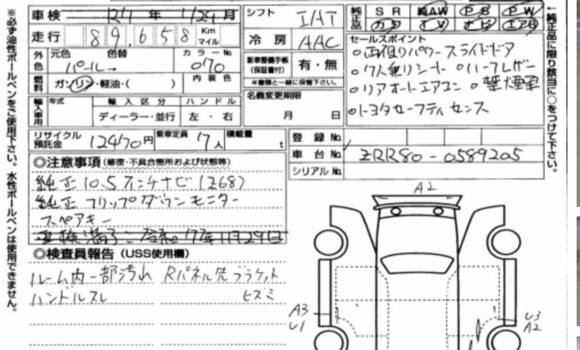 車検 R7年 11/29月
シフト IAT
純正品 SR 純AW PS PW
カワ TV ナビ エアB
走行 89,658 Km マイル
冷房 AAC
セールスポイント
元色 色替 カラーNo
外色 パール→ 070
新車整備手帳(保証書付) 有・無
※書類と一緒に保管下さい
。両側パワースライドドア
。7人乗りシート 。ハーフレザー
燃料 ガソリン・軽油・( ) 内装色
名義変更期限
月 日
。リアオートエアコン
。トヨタセーフティセンス
輸入車用 年式 輸入区分 ハンドル
ディーラー・並行 左・右
リサイクル預託金 12470円 乗車定員 7人 積載量 t
登録No
車台No ZRR80-0589205
シリアルNo
○注意事項(修復・不具合箇所および状態等)
純正10.5インチナビ(Z68)
純正フリップダウンモニター
スペアキー
車検満了:令和7年11月29日
○検査員報告(USS使用欄)
ルーム内一部汚れ Rパネル先ブラケット
ハンドルスレ ヒズミ
A2
A3
U1
U3
A2
※必ず油性ボールペンをご使用下さい。水性ボールペンは使用できません。
←純正品に限り該当に○をつけて下さい。